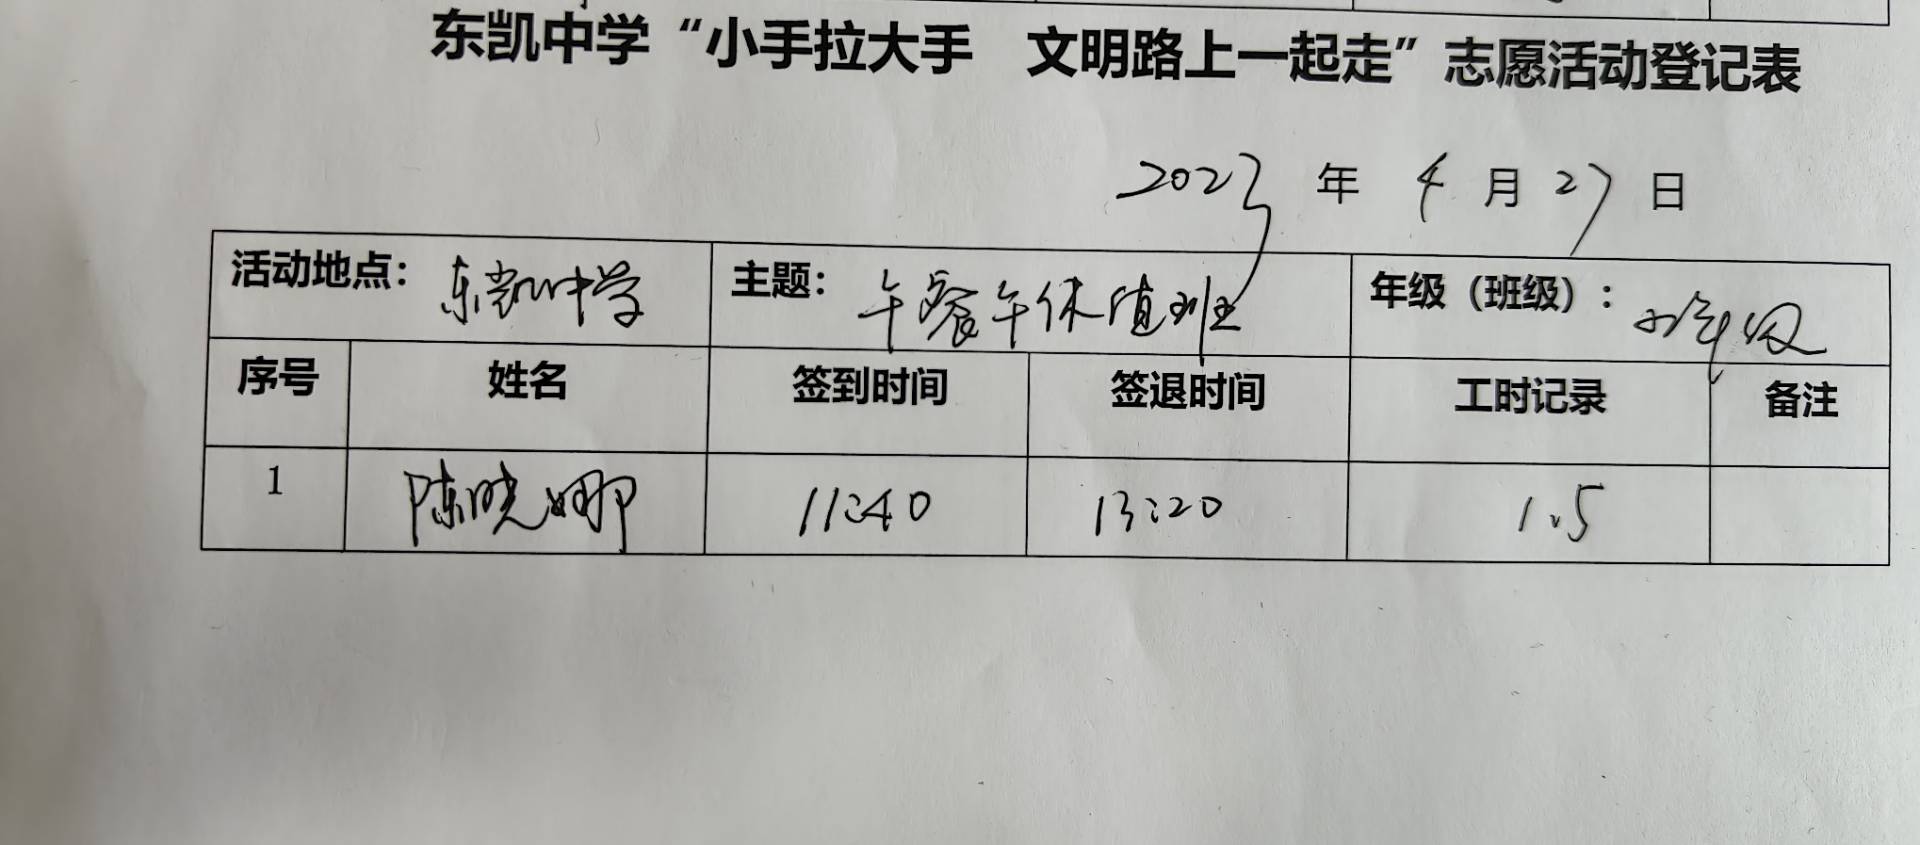 东凯中学“小手拉大手 文明路上一起走”志愿活动登记表
2023 年 4 月 27 日
活动地点： 东凯中学 主题： 午餐午休值班 年级（班级）： 年级
序号 姓名 签到时间 签退时间 工时记录 备注
1 陈晓娜 11:40 13:20 1.5